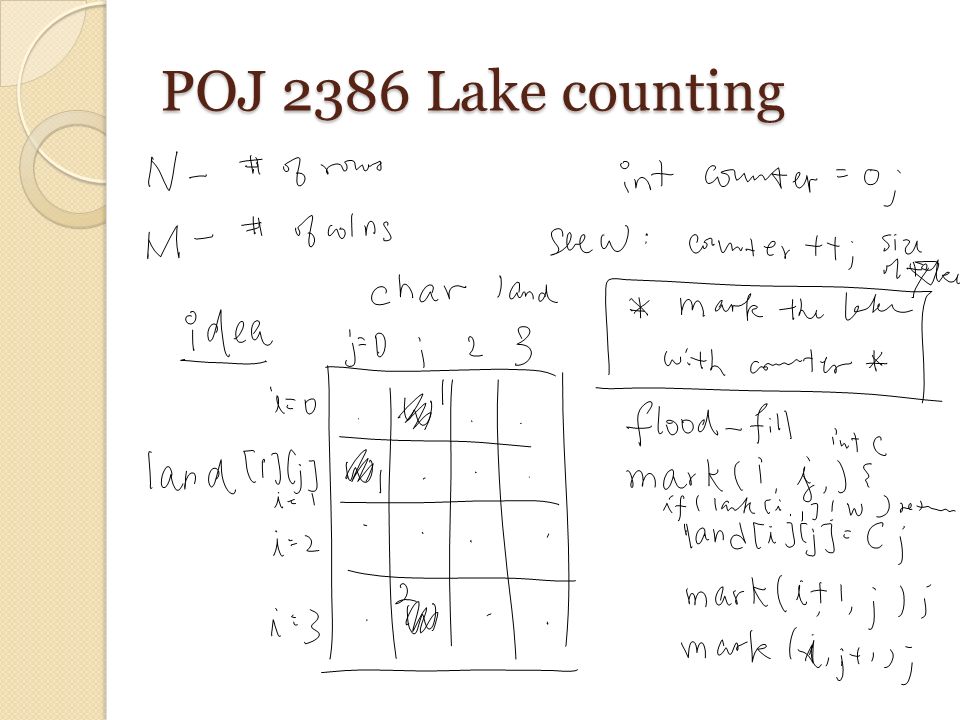 POJ 2386 Lake counting
N - # of rows
M - # of colns
idea
char land
j=0 1 2 3
i=0 . 1 . .
land[i][j]
i=1 1 . . .
i=2 . . . .
i=3 . 2 . .
int counter = 0;
see W: counter ++; size
of
* mark the lake
with counter *
flood-fill
int c
mark(i, j,) {
if (land[i][j] != W) return
land[i][j] = C;
mark(i+1, j);
mark(i, j+1);